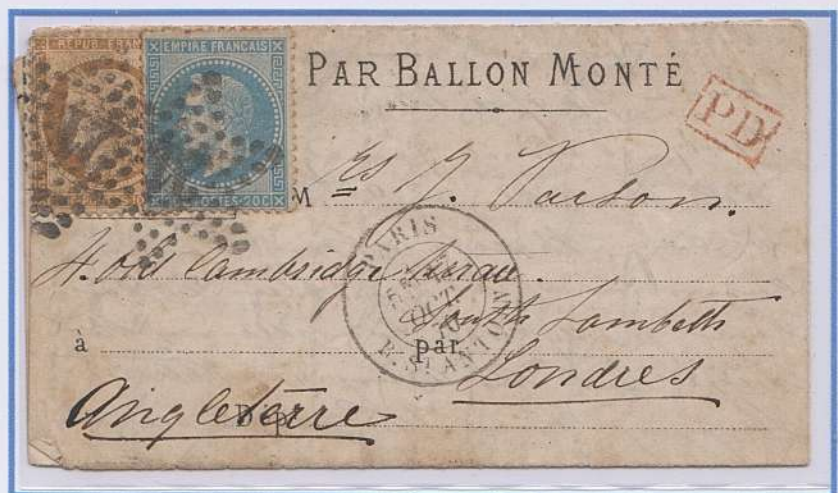 REPUB FRANC
EMPIRE FRANÇAIS
POSTES 20C
PAR BALLON MONTÉ
PD
Mrs J. Parson.
4. old Cambridge Terrace.
South Lambeth
à par Londres
Angleterre
PARIS
OCT
70
R. ST ANTOINE